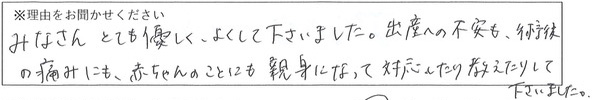 ※理由をお聞かせください
みなさん とても優しく、よくして下さいました。出産への不安も、術後
の痛みにも、赤ちゃんのことにも 親身になって 対応したり 教えたりして
下さいました。